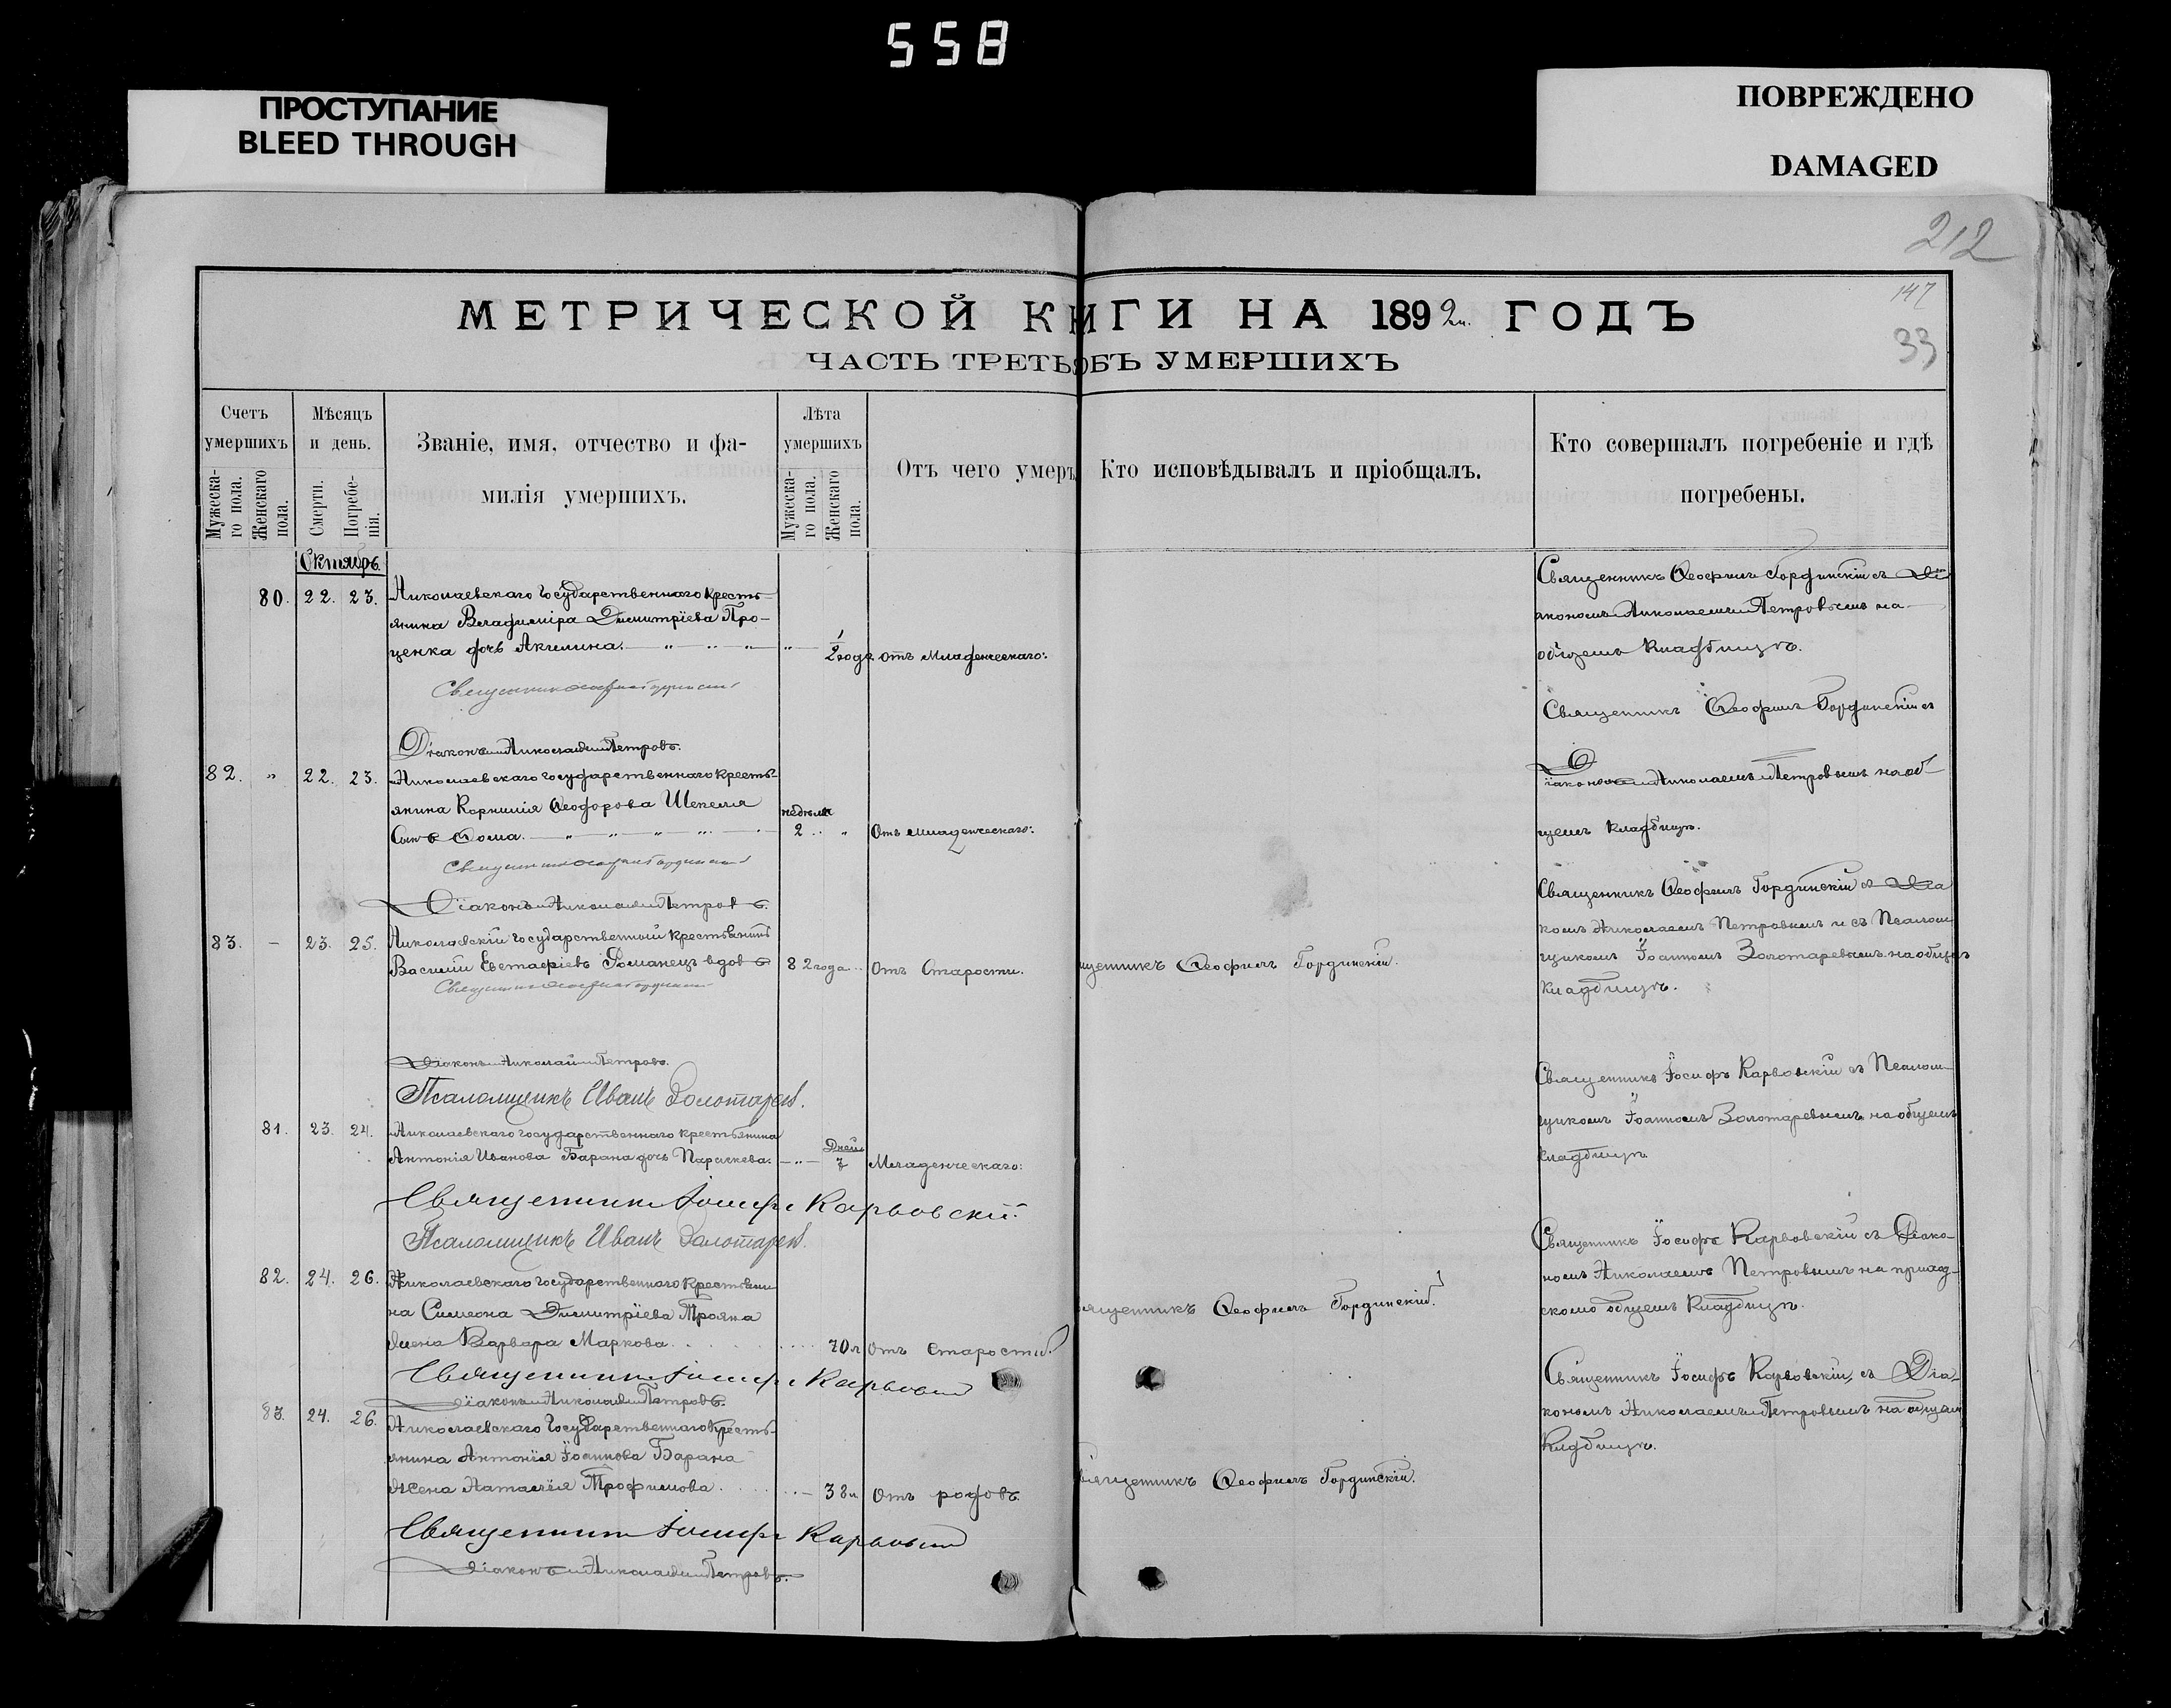 558
ПРОСТУПАНИЕ
BLEED THROUGH
ПОВРЕЖДЕНО
DAMAGED
212
147
33
МЕТРИЧЕСКОЙ КНИГИ НА 1892 ГОДЪ
ЧАСТЬ ТРЕТЬ ОБЪ УМЕРШИХЪ
Счетъ умершихъ
Мужеска-го пола.
Женскаго пола.
Мѣсяцъ и день.
Смерти.
Погребе-нія.
Званіе, имя, отчество и фа-
милія умершихъ.
Лѣта умершихъ
Мужеска-го пола.
Женскаго пола.
Отъ чего умеръ
Кто исповѣдывалъ и пріобщалъ.
Кто совершалъ погребеніе и гдѣ
погребены.
Октябрь.
80. 22. 23. Николаевскаго государственнаго кресть-
янина Владиміра Димитріева Про-
ценка дочь Акилина. 1/2 года отъ Младенческаго.
Священникъ Ѳеофилъ Гординскій съ Ді
акономъ Николаемъ Петровымъ на
общемъ кладбищѣ.
Діаконъ Николай Петровъ.
82. " 22. 23. Николаевскаго государственнаго кресть-
янина Корнилія Ѳеодорова Шекеля
Сынъ Ѳома. недѣли 2 Отъ Младенческаго.
Священникъ Ѳеофилъ Гординскій съ
Діакономъ Николаемъ Петровымъ на об-
щемъ кладбищѣ.
Діаконъ Николай Петровъ.
83. - 23. 25. Николаевскій государственный крестьянинъ
Василій Евстафіевъ Романецъ вдовъ 82 года Отъ Старости.
щенникъ Ѳеофилъ Гординскій.
Священникъ Ѳеофилъ Гординскій съ Діа
комъ Николаемъ Петровымъ и съ Псалом-
щикомъ Іоанномъ Золотаревымъ на общемъ
кладбищѣ.
Діаконъ Николай Петровъ.
Псаломщикъ Иванъ Золотаревъ.
81. 23. 24. Николаевскаго государственнаго крестьянина
Антонія Иванова Барана дочь Параскева. Дней 7 Младенческаго.
Священникъ Іосифъ Карвовскій съ Псалом-
щикомъ Іоанномъ Золотаревымъ на общемъ
кладбищѣ.
Священникъ Іосифъ Карвовскій
Псаломщикъ Иванъ Золотаревъ.
82. 24. 26. Николаевскаго государственнаго крестьяни
на Симеона Димитріева Трояна
жена Варвара Маркова. 70 л отъ старости.
ященникъ Ѳеофилъ Гординскій.
Священникъ Іосифъ Карвовскій съ Діако-
номъ Николаемъ Петровымъ на приход-
скомъ общемъ кладбищѣ.
Священникъ Іосифъ Карвовскій
Діаконъ Николай Петровъ.
83. 24. 26. Николаевскаго государственнаго кресть-
янина Антонія Іоаннова Барана
жена Наталія Трофимова. 38 л Отъ родовъ.
вященникъ Ѳеофилъ Гординскій.
Священникъ Іосифъ Карвовскій, съ Діа-
кономъ Николаемъ Петровымъ на общемъ
кладбищѣ.
Священникъ Іосифъ Карвовскій
Діаконъ Николай Петровъ.